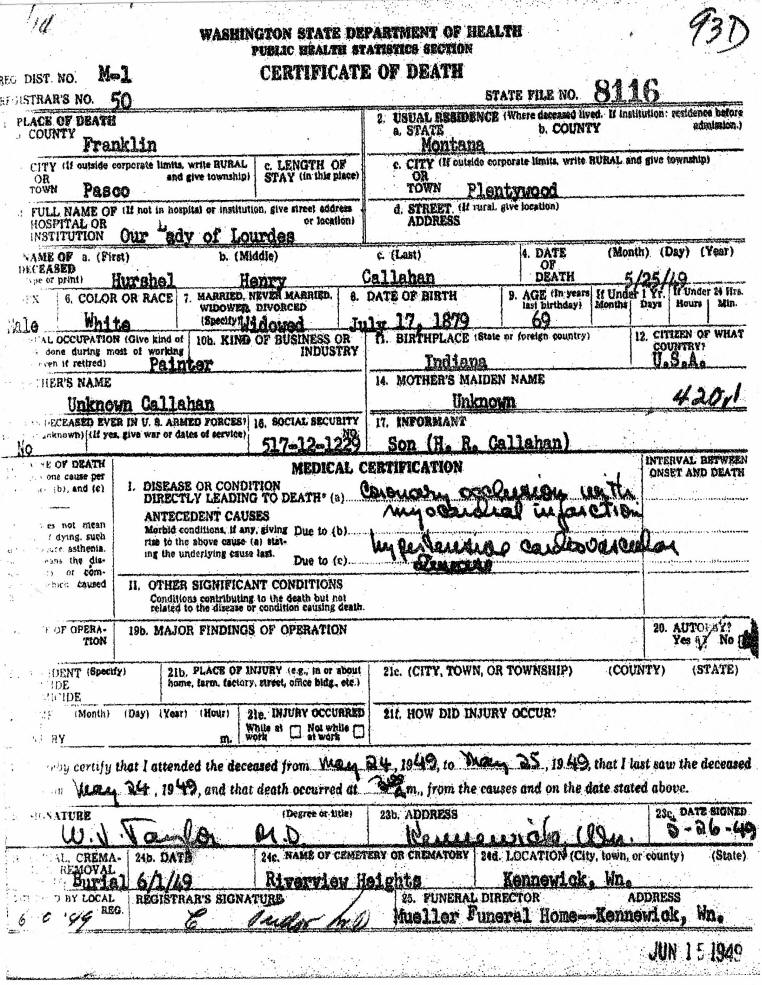 93D
WASHINGTON STATE DEPARTMENT OF HEALTH
PUBLIC HEALTH STATISTICS SECTION
REG DIST. NO. M-1 CERTIFICATE OF DEATH
REGISTRAR'S NO. 50 STATE FILE NO. 8116
PLACE OF DEATH
COUNTY
Franklin
2. USUAL RESIDENCE (Where deceased lived. If institution: residence before admission.)
a. STATE b. COUNTY
Montana
CITY (If outside corporate limits, write RURAL and give township)
OR
TOWN Pasco
c. LENGTH OF STAY (in this place)
c. CITY (If outside corporate limits, write RURAL and give township)
OR
TOWN Plentywood
FULL NAME OF (If not in hospital or institution, give street address or location)
HOSPITAL OR
INSTITUTION Our Lady of Lourdes
d. STREET (If rural, give location)
ADDRESS
NAME OF DECEASED
a. (First) b. (Middle) c. (Last)
Hurshel Henry Callahan
4. DATE OF DEATH (Month) (Day) (Year)
5/25/49
Male
6. COLOR OR RACE
White
7. MARRIED, NEVER MARRIED, WIDOWED, DIVORCED (Specify)
Widowed
8. DATE OF BIRTH
July 17, 1879
9. AGE (In years last birthday)
69
If Under 1 Yr. Months Days
If Under 24 Hrs. Hours Min.
AL OCCUPATION (Give kind of
done during most of working
even if retired) Painter
10b. KIND OF BUSINESS OR INDUSTRY
11. BIRTHPLACE (State or foreign country)
Indiana
12. CITIZEN OF WHAT COUNTRY?
U.S.A.
HER'S NAME
Unknown Callahan
14. MOTHER'S MAIDEN NAME
Unknown
420.1
DECEASED EVER IN U. S. ARMED FORCES?
(If yes, give war or dates of service)
No
16. SOCIAL SECURITY NO.
517-12-1229
17. INFORMANT
Son (H. R. Callahan)
E OF DEATH
one cause per
(b), and (c)
es not mean
f dying, such
asthenia.
the dis-
or com-
caused
MEDICAL CERTIFICATION
INTERVAL BETWEEN ONSET AND DEATH
I. DISEASE OR CONDITION
DIRECTLY LEADING TO DEATH* (a) Coronary occlusion with
myocardial infarction
ANTECEDENT CAUSES
Morbid conditions, if any, giving Due to (b)
rise to the above cause (a) stat-
ing the underlying cause last. Due to (c)
hypertensive cardiovascular
disease
II. OTHER SIGNIFICANT CONDITIONS
Conditions contributing to the death but not
related to the disease or condition causing death.
OF OPERA-
TION
19b. MAJOR FINDINGS OF OPERATION
20. AUTOPSY?
Yes No
DENT (Specify)
IDE
ICIDE
21b. PLACE OF INJURY (e.g., in or about
home, farm, factory, street, office bldg., etc.)
21c. (CITY, TOWN, OR TOWNSHIP) (COUNTY) (STATE)
(Month) (Day) (Year) (Hour)
RY m.
21e. INJURY OCCURRED
While at work Not while at work
21f. HOW DID INJURY OCCUR?
by certify that I attended the deceased from May 24, 1949, to May 25, 1949, that I last saw the deceased
May 24, 1949, and that death occurred at m., from the causes and on the date stated above.
SIGNATURE (Degree or title)
W. J. Taylor M.D.
23b. ADDRESS
Kennewick, Wn.
23c. DATE SIGNED
5-26-49
AL, CREMA-
REMOVAL
Burial
24b. DATE
6/1/49
24c. NAME OF CEMETERY OR CREMATORY
Riverview Heights
24d. LOCATION (City, town, or county) (State)
Kennewick, Wn.
D BY LOCAL
REG.
REGISTRAR'S SIGNATURE
25. FUNERAL DIRECTOR ADDRESS
Mueller Funeral Home--Kennewick, Wn.
JUN 15 1949